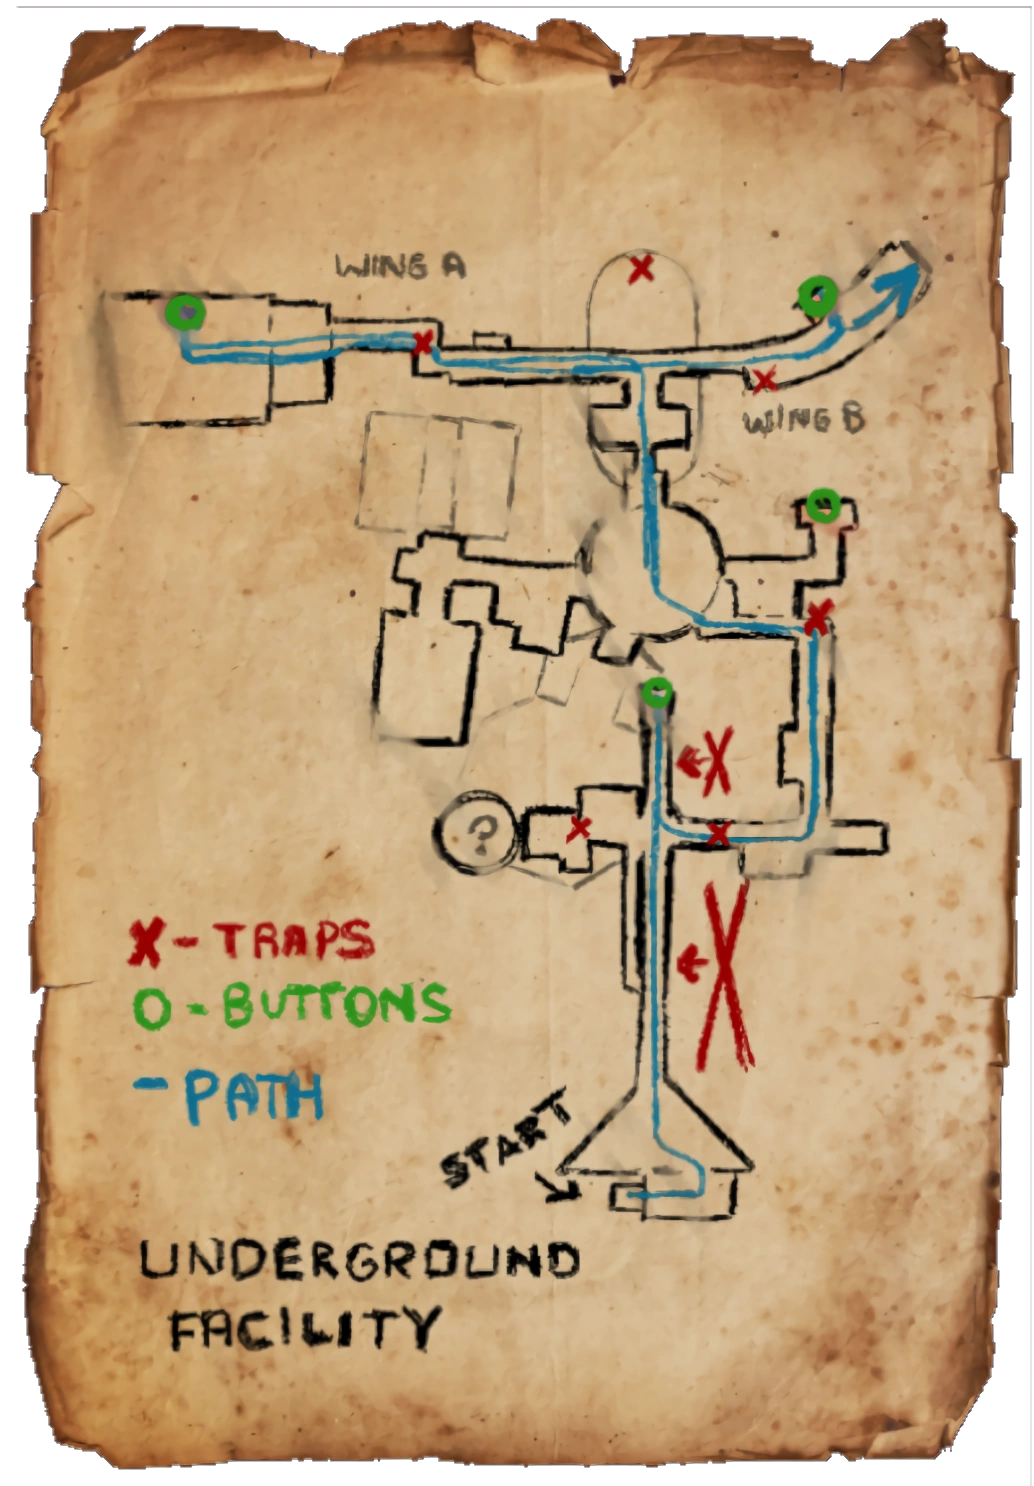 WING A
WING B
?
X - TRAPS
O - BUTTONS
- PATH
START
UNDERGROUND
FACILITY